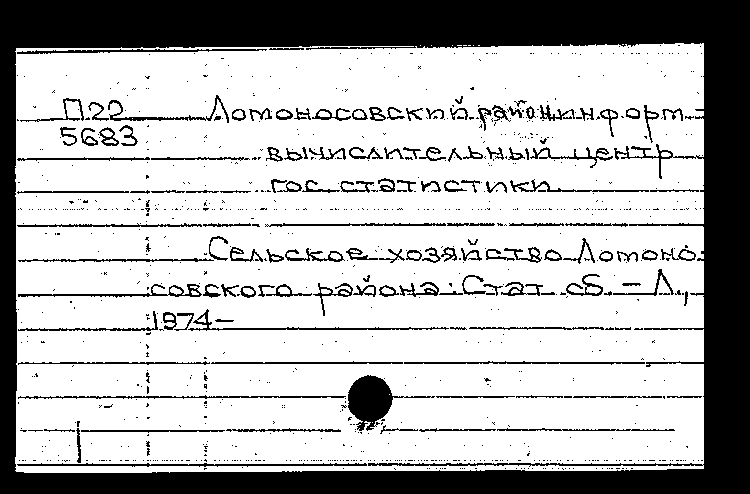 П22 Ломоносовский район. информ.-
5683
вычислительный центр
гос. статистики.
Сельское хозяйство Ломоно-
совского района: Стат. сб. – Л.,
1974–